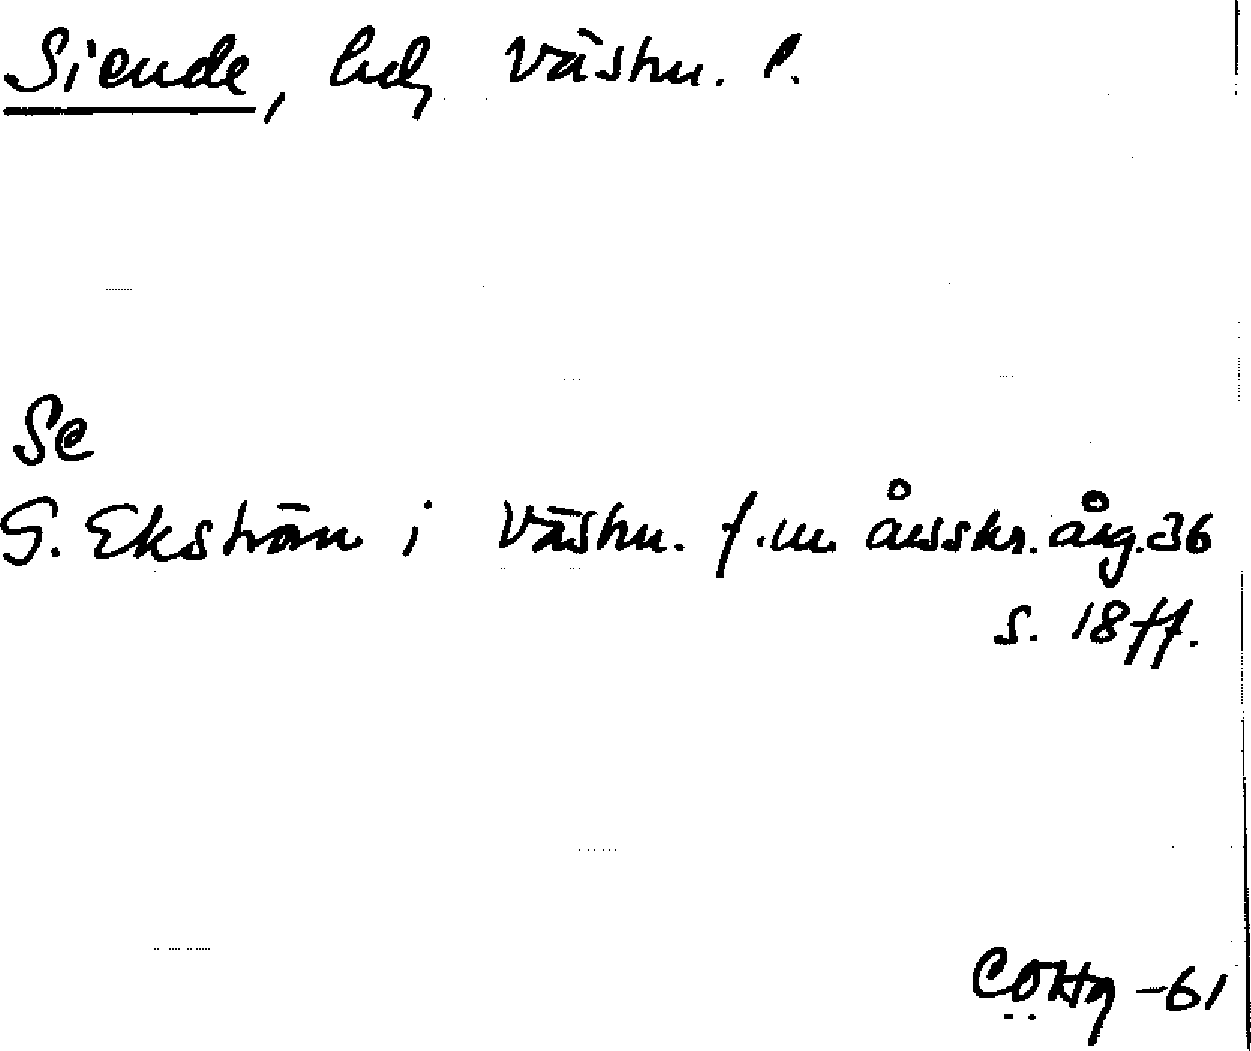 Siende, hd, Västm. l.
Se
G. Ekström i Västm. f.m. årsskr. årg. 36
s. 18 ff.
-61